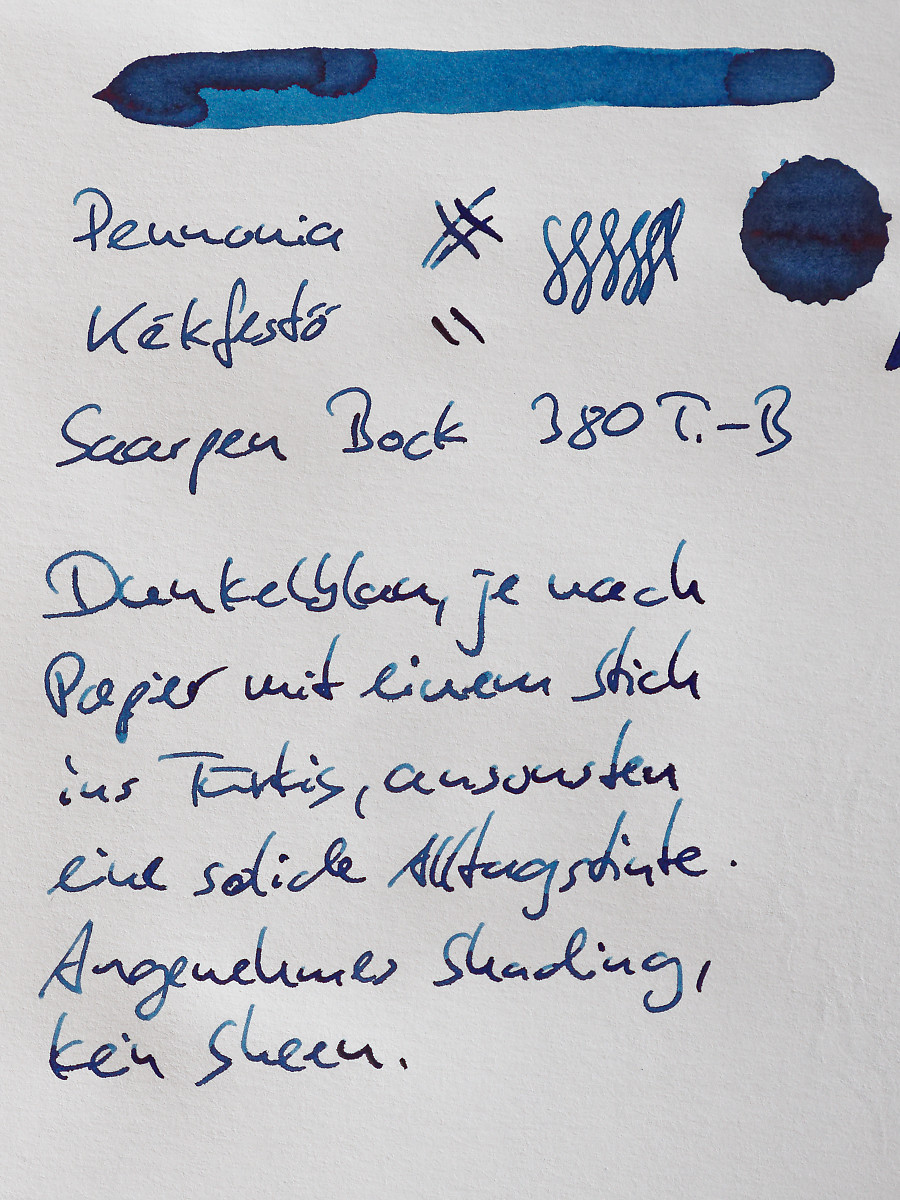 Pennonia
Kékfestő
Saarpen Bock 380 T.-B
Dunkelblau, je nach
Papier mit einem Stich
ins Türkis, ansonsten
eine solide Alltagstinte.
Angenehmes Shading,
kein Sheen.